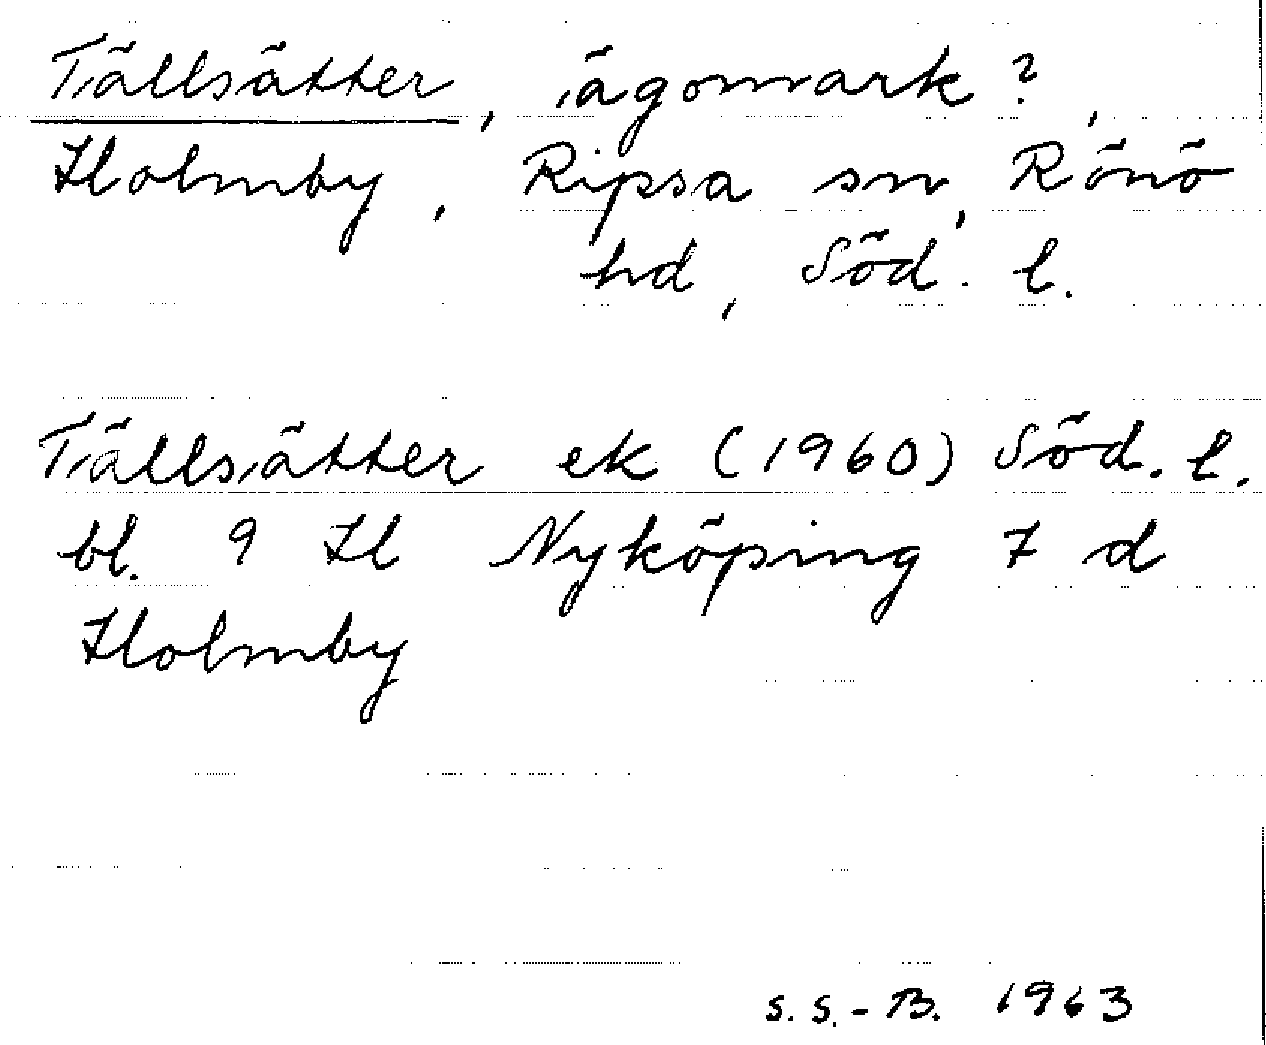 Tällsätter, ägomark?,
Holmby, Ripsa sn, Rönö
hd, Söd. l.
Tällsätter ek (1960) Söd. l.
bl. 9 H Nyköping 7 d
Holmby
S. S.-B. 1963